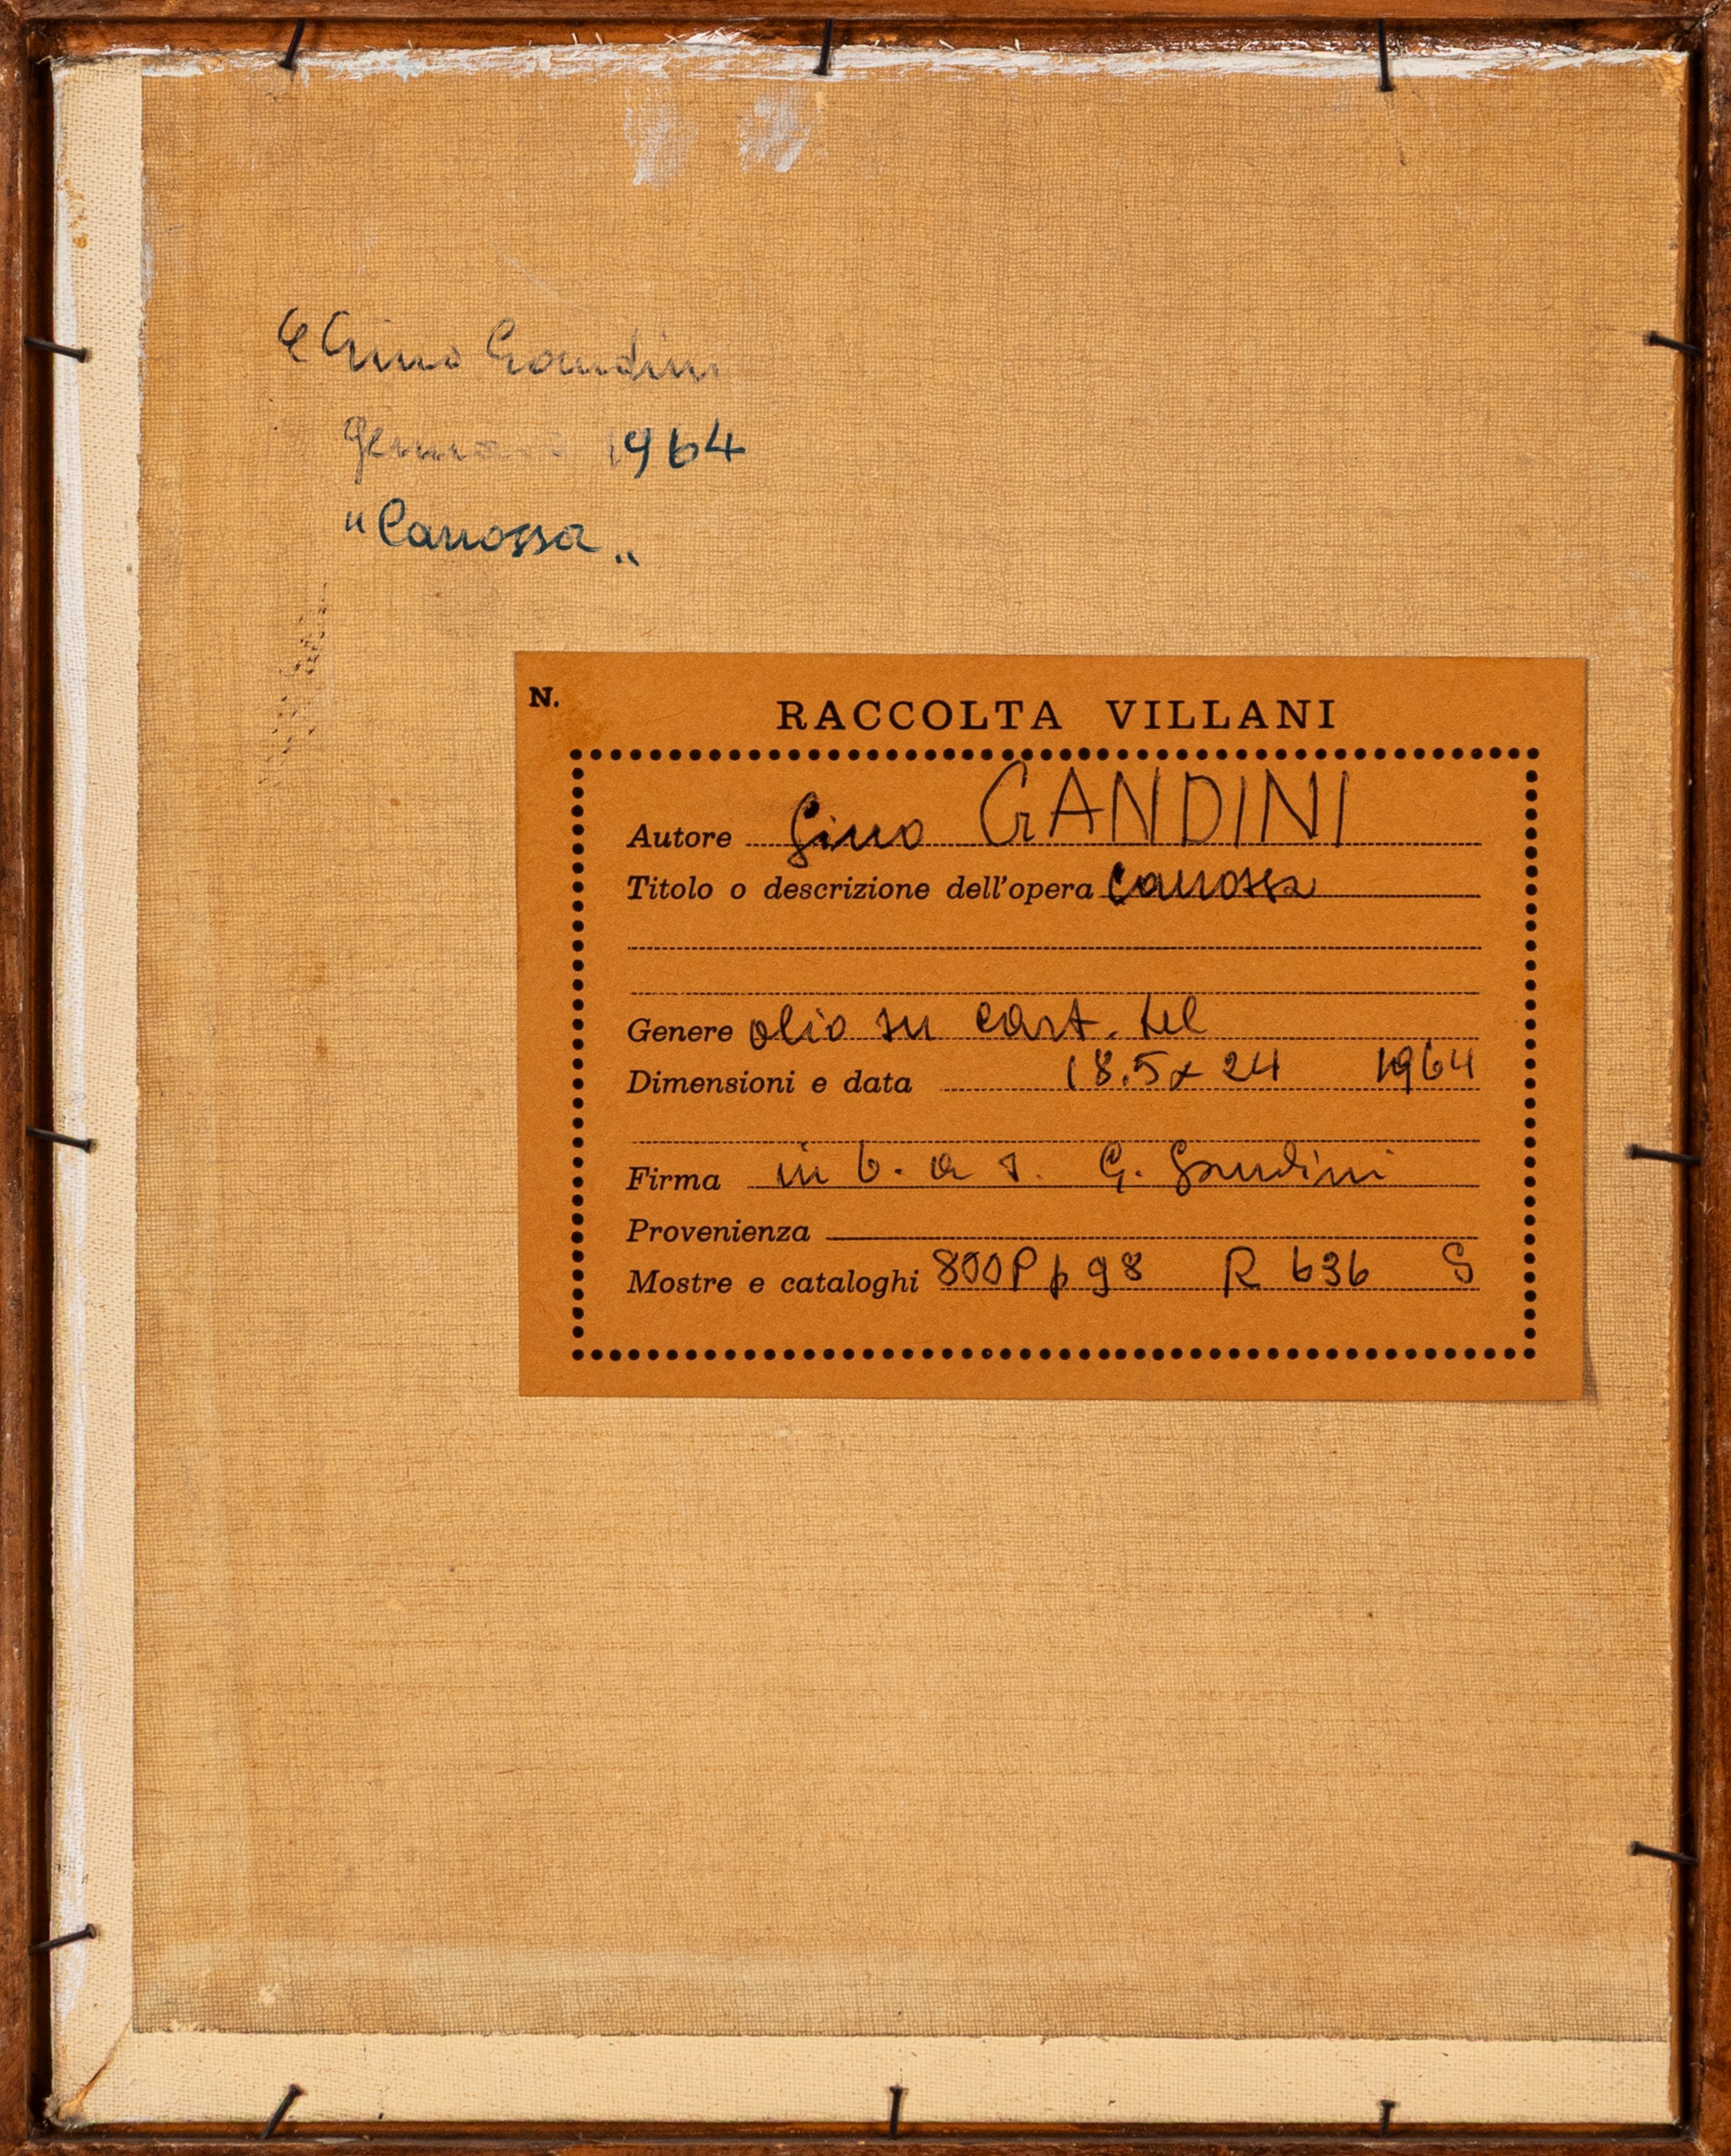 Gino Gandini
1964
"Canossa"
N.
RACCOLTA VILLANI
Autore Gino GANDINI
Titolo o descrizione dell'opera Canossa
Genere olio su cart. tel
Dimensioni e data 18.5x24 1964
Firma in b. a s. G. Gandini
Provenienza
Mostre e cataloghi 800P p 98 R 636 S